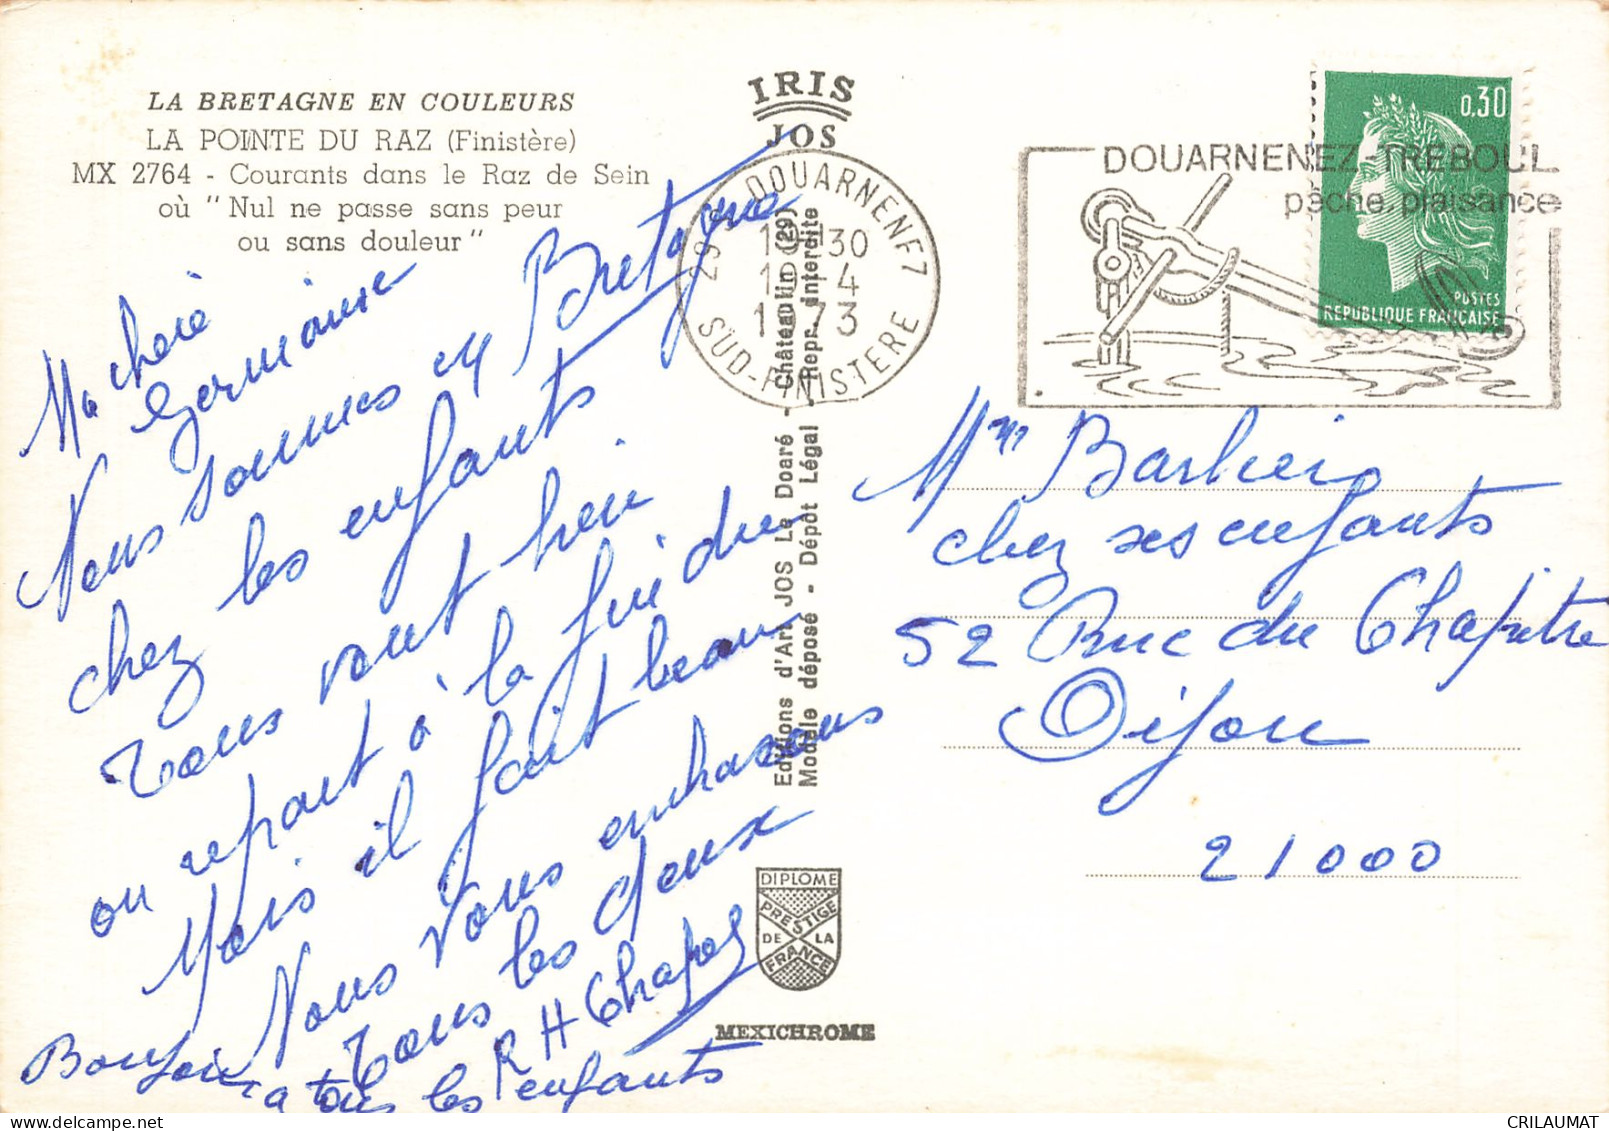 LA BRETAGNE EN COULEURS
LA POINTE DU RAZ (Finistère)
MX 2764 - Courants dans le Raz de Sein
où "Nul ne passe sans peur
ou sans douleur"
Ma cherie
Germaine
Nous sommes en Bretagne
chez les enfants
Tous vont bien
on repart à la fin du
Mais il fait beau
Nous vous embrassons
Tous les deux
R H Chapel
Bonjour
a tous les enfants
IRIS
JOS
29 DOUARNENEZ
-30
-4
1973
SUD-FINISTERE
Editions d'Art JOS Le Doaré - Châteaulin (29)
Modèle déposé - Dépôt Légal - Repr. interdite
DIPLOME
PRESTIGE
DE LA
FRANCE
MEXICHROME
DOUARNENEZ-TREBOUL
pêche, plaisance
0,30
POSTES
REPUBLIQUE FRANCAISE
Mme Barbier
chez ses enfants
52 Rue du Chapitre
Dijon
21000
CRILAUMAT